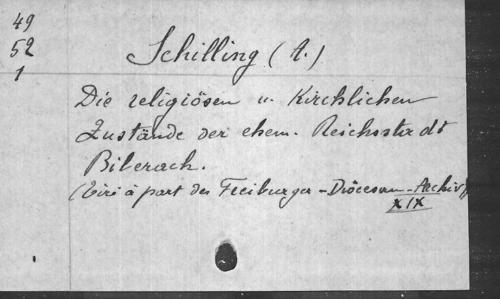 49
52
1
Schilling (A.)
Die religiösen u. Kirchlichen
Zustände der ehem. Reichsstadt
Biberach.
(Tiré à part des Freiburger-Diöcesan-Archiv)
XIX